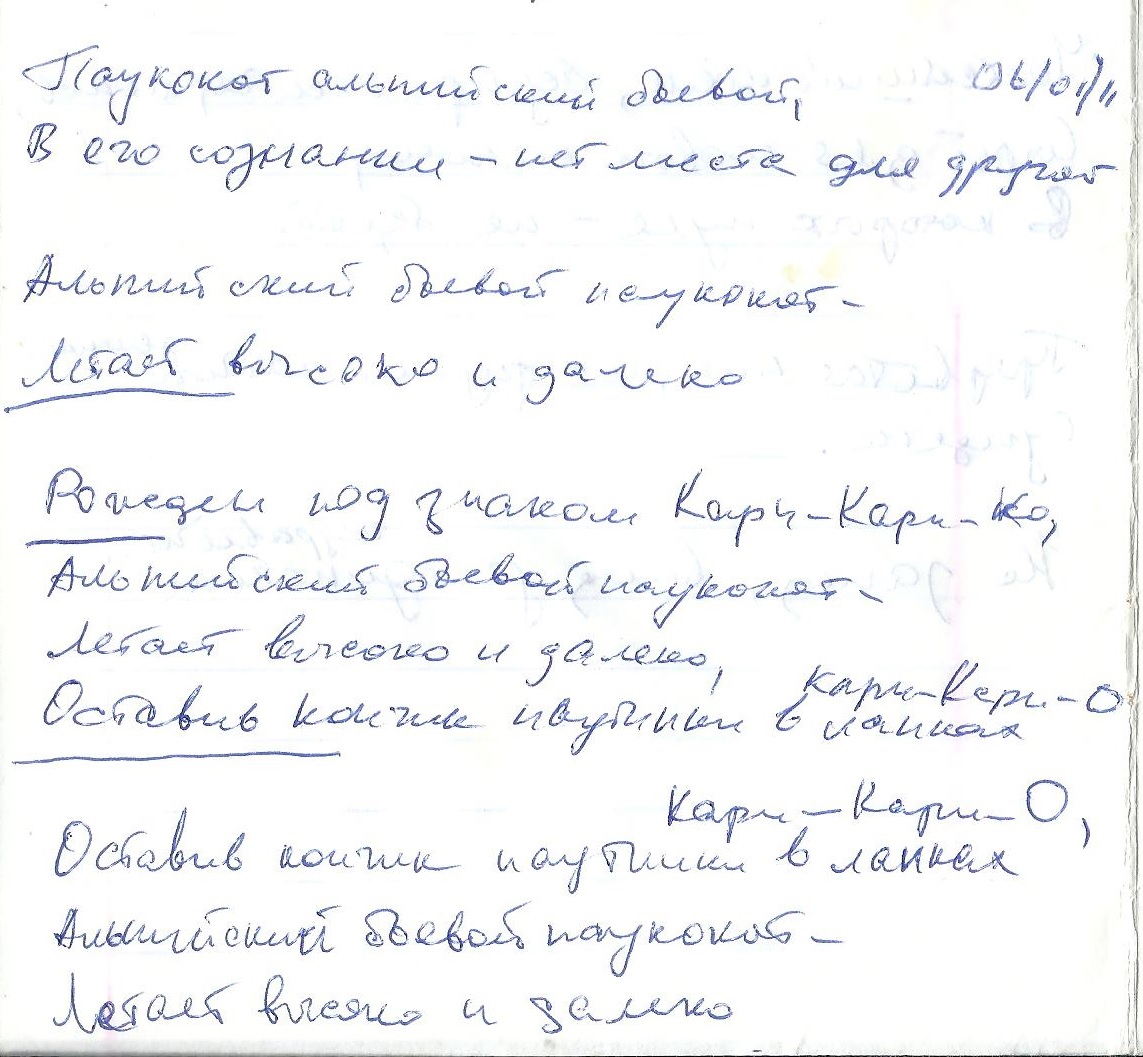 Паукокот альпийский боевой, 06/01/11
В его сознании – нет места для других
Альпийский боевой паукокот –
Летает высоко и далеко
Рожден под знаком Кари-Кари-Ко,
Альпийский боевой паукокот –
Летает высоко и далеко,
Кари-Кари-О
Оставив кончик паутинки в лапках
Кари-Кари-О,
Оставив кончик паутинки в лапках
Альпийский боевой паукокот –
Летает высоко и далеко